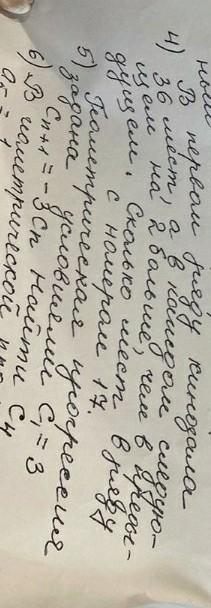 ной
4) В первом ряду кинозала
36 мест, а в каждом следую-
щем на 2 больше, чем в преды-
дущем. Сколько мест в ряду
с номером 17.
5) Геометрическая прогрессия
задана условиями C₁ = 3
Cₙ₊₁ = -3Cₙ Найти C₄
6) В геометрической